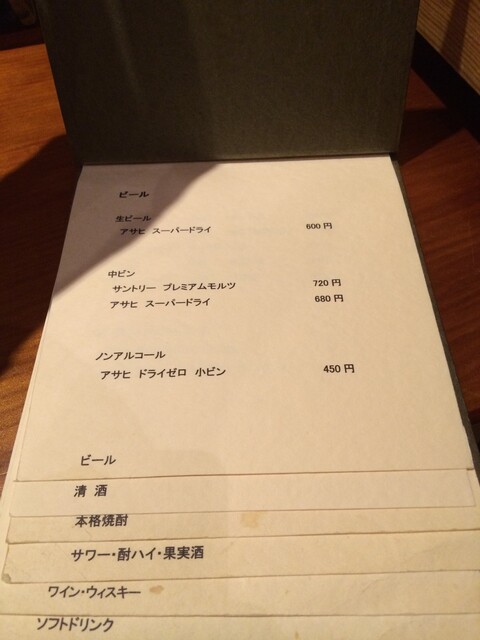 ビール
生ビール
アサヒ スーパードライ 600円
中ビン
サントリー プレミアムモルツ 720円
アサヒ スーパードライ 680円
ノンアルコール
アサヒ ドライゼロ 小ビン 450円
ビール
清 酒
本格焼酎
サワー・酎ハイ・果実酒
ワイン・ウィスキー
ソフトドリンク